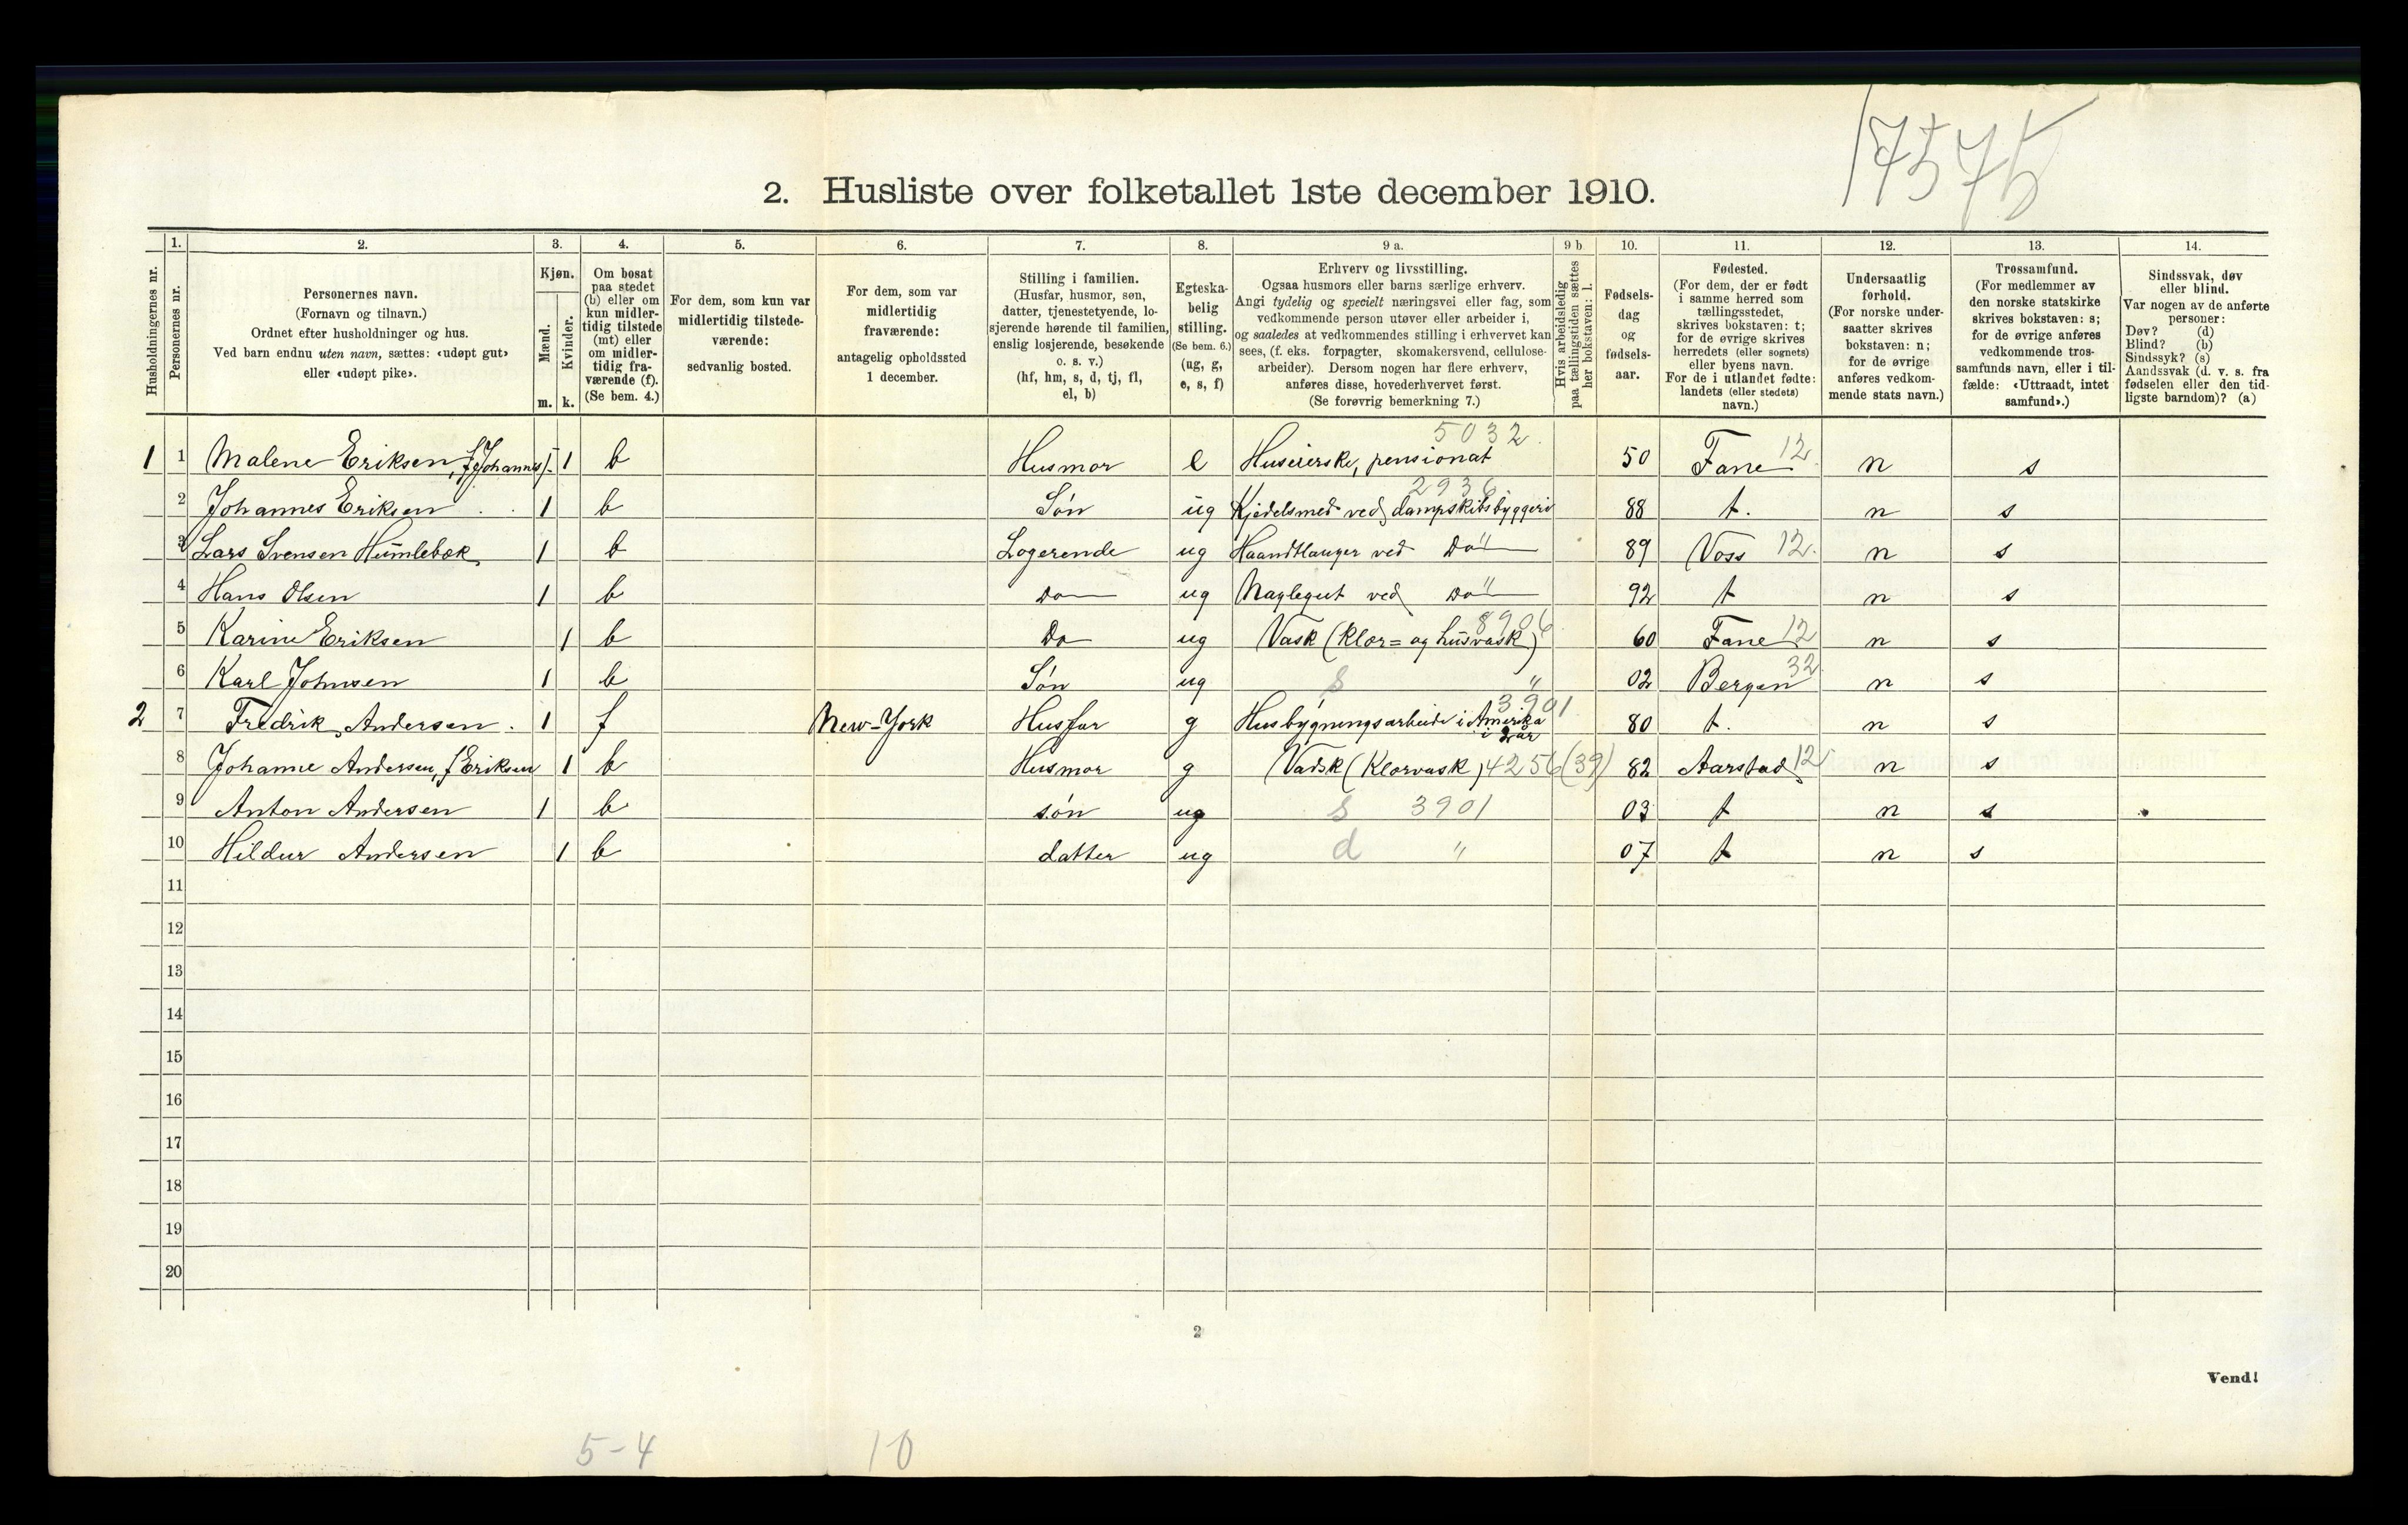 17575
2. Husliste over folketallet 1ste december 1910.
Husholdningernes nr.
1.
Personernes nr.
2.
Personernes navn.
(Fornavn og tilnavn.)
Ordnet efter husholdninger og hus.
Ved barn endnu uten navn, sættes: «udøpt gut»
eller «udøpt pike».
3.
Kjøn.
Mænd.
Kvinder.
m. k.
4.
Om bosat
paa stedet
(b) eller om
kun midler-
tidig tilstede
(mt) eller
om midler-
tidig fra-
værende (f).
(Se bem. 4.)
5.
For dem, som kun var
midlertidig tilstede-
værende:
sedvanlig bosted.
6.
For dem, som var
midlertidig
fraværende:
antagelig opholdssted
1 december.
7.
Stilling i familien.
(Husfar, husmor, søn,
datter, tjenestetyende, lo-
sjerende hørende til familien,
enslig losjerende, besøkende
o. s. v.)
(hf, hm, s, d, tj, fl,
el, b)
8.
Egteska-
belig
stilling.
(Se bem. 6.)
(ug, g,
e, s, f)
9 a.
Erhverv og livsstilling.
Ogsaa husmors eller barns særlige erhverv.
Angi tydelig og specielt næringsvei eller fag, som
vedkommende person utøver eller arbeider i,
og saaledes at vedkommendes stilling i erhvervet kan
sees, (f. eks. forpagter, skomakersvend, cellulose-
arbeider). Dersom nogen har flere erhverv,
anføres disse, hovederhvervet først.
(Se forøvrig bemerkning 7.)
9 b
Hvis arbeidsledig
paa tællingstiden sættes
her bokstaven: l.
10.
Fødsels-
dag
og
fødsels-
aar.
11.
Fødested.
(For dem, der er født
i samme herred som
tællingsstedet,
skrives bokstaven: t;
for de øvrige skrives
herredets (eller sognets)
eller byens navn.
For de i utlandet fødte:
landets (eller stedets)
navn.)
12.
Undersaatlig
forhold.
(For norske under-
saatter skrives
bokstaven: n;
for de øvrige
anføres vedkom-
mende stats navn.)
13.
Trossamfund.
(For medlemmer av
den norske statskirke
skrives bokstaven: s;
for de øvrige anføres
vedkommende tros-
samfunds navn, eller i til-
fælde: «Uttraadt, intet
samfund».)
14.
Sindssvak, døv
eller blind.
Var nogen av de anførte
personer:
Døv? (d)
Blind? (b)
Sindssyk? (s)
Aandssvak (d. v. s. fra
fødselen eller den tid-
ligste barndom)? (a)
5032.
1 1 Malene Eriksen, f. Johannes) 1 b Husmor e Huseierske, pensionat 50 Fane 12 n s
2936
2 Johannes Eriksen 1 b Søn ug Kjedelsmed ved dampskibsbyggeri 88 t. n s
3 Lars Svensen Humlebæk 1 b Logerende ug Haandlanger ved Do " 89 Voss 12. n s
4 Hans Olsen 1 b Do ug Naglegut ved Do " 92 t n s
8906
5 Karine Eriksen 1 b Do ug Vask (Klær= og husvask) 60 Fane 12 n s
6 Karl Johnsen 1 b Søn ug s " 02 Bergen 32 n s
3901
2 7 Fredrik Andersen. 1 f New-York Husfar g Husbygningsarbeide i Amerika 80 t. n s
i 2 år
8 Johanne Andersen, f Eriksen 1 b Husmor g Vadsk (Klærvask) 4256 (39) 82 Aarstad 12 n s
9 Anton Andersen 1 b søn ug s 3901 03 t n s
10 Hildur Andersen 1 b datter ug d " 07 t n s
11
12
13
14
15
16
17
18
19
20
2
Vend!
5-4 10